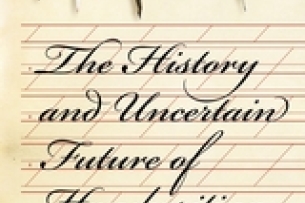 The History
and Uncertain
Future of